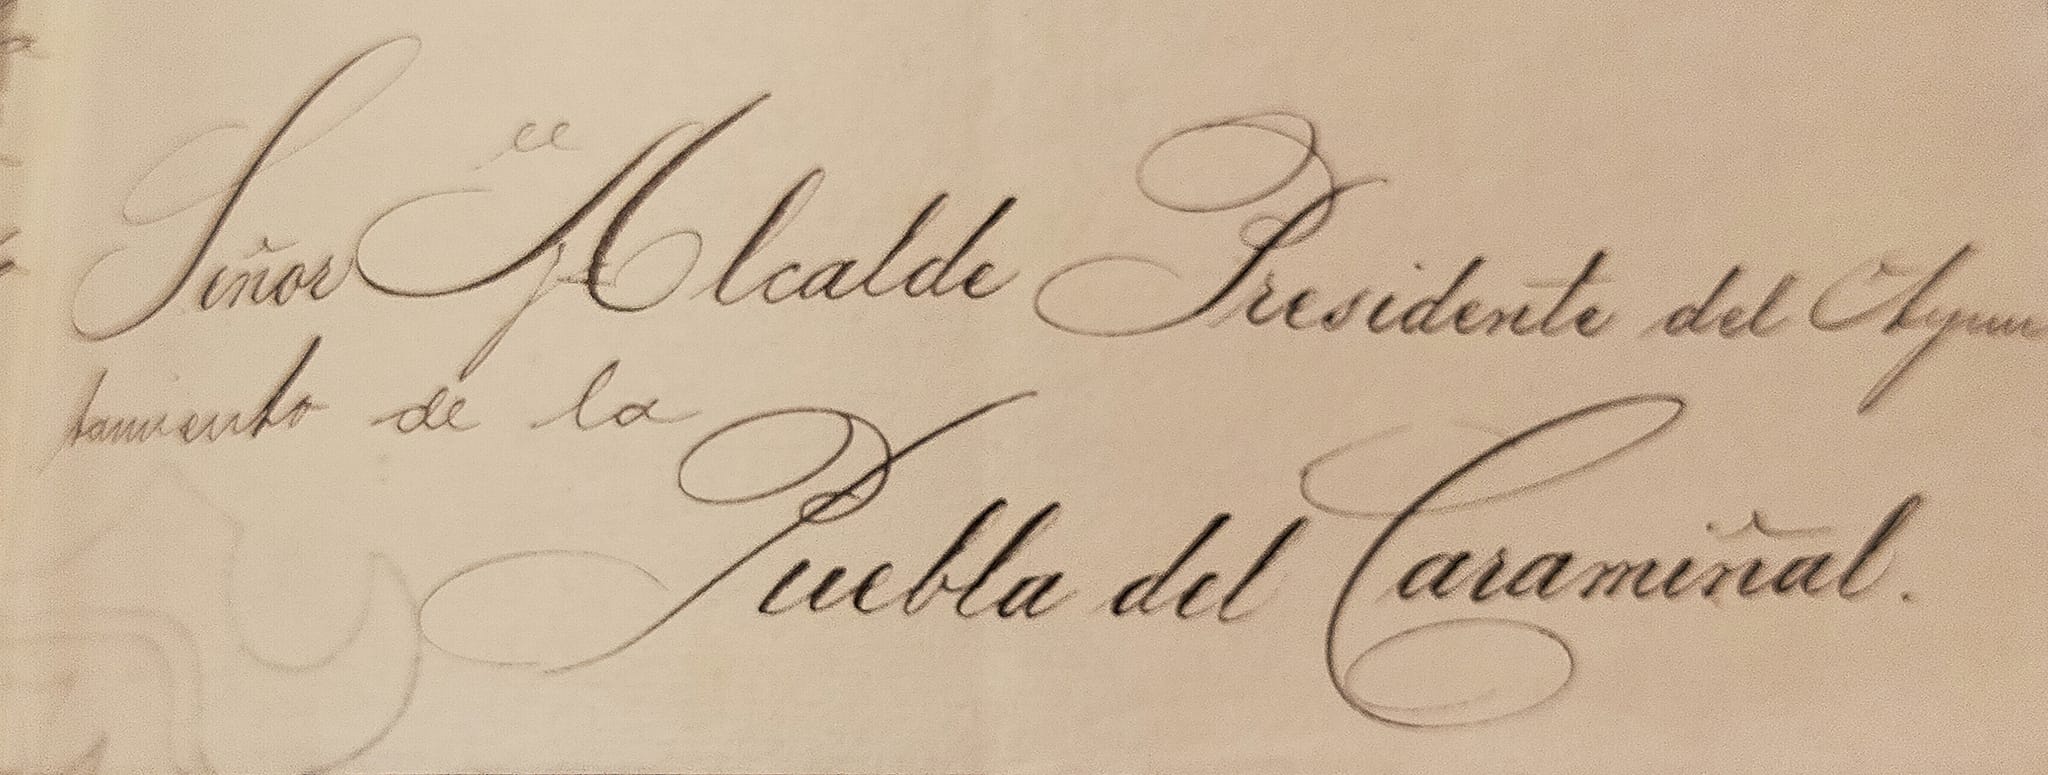 Señor Alcalde Presidente del Ayun
tamiento de la
Puebla del Caramiñal.